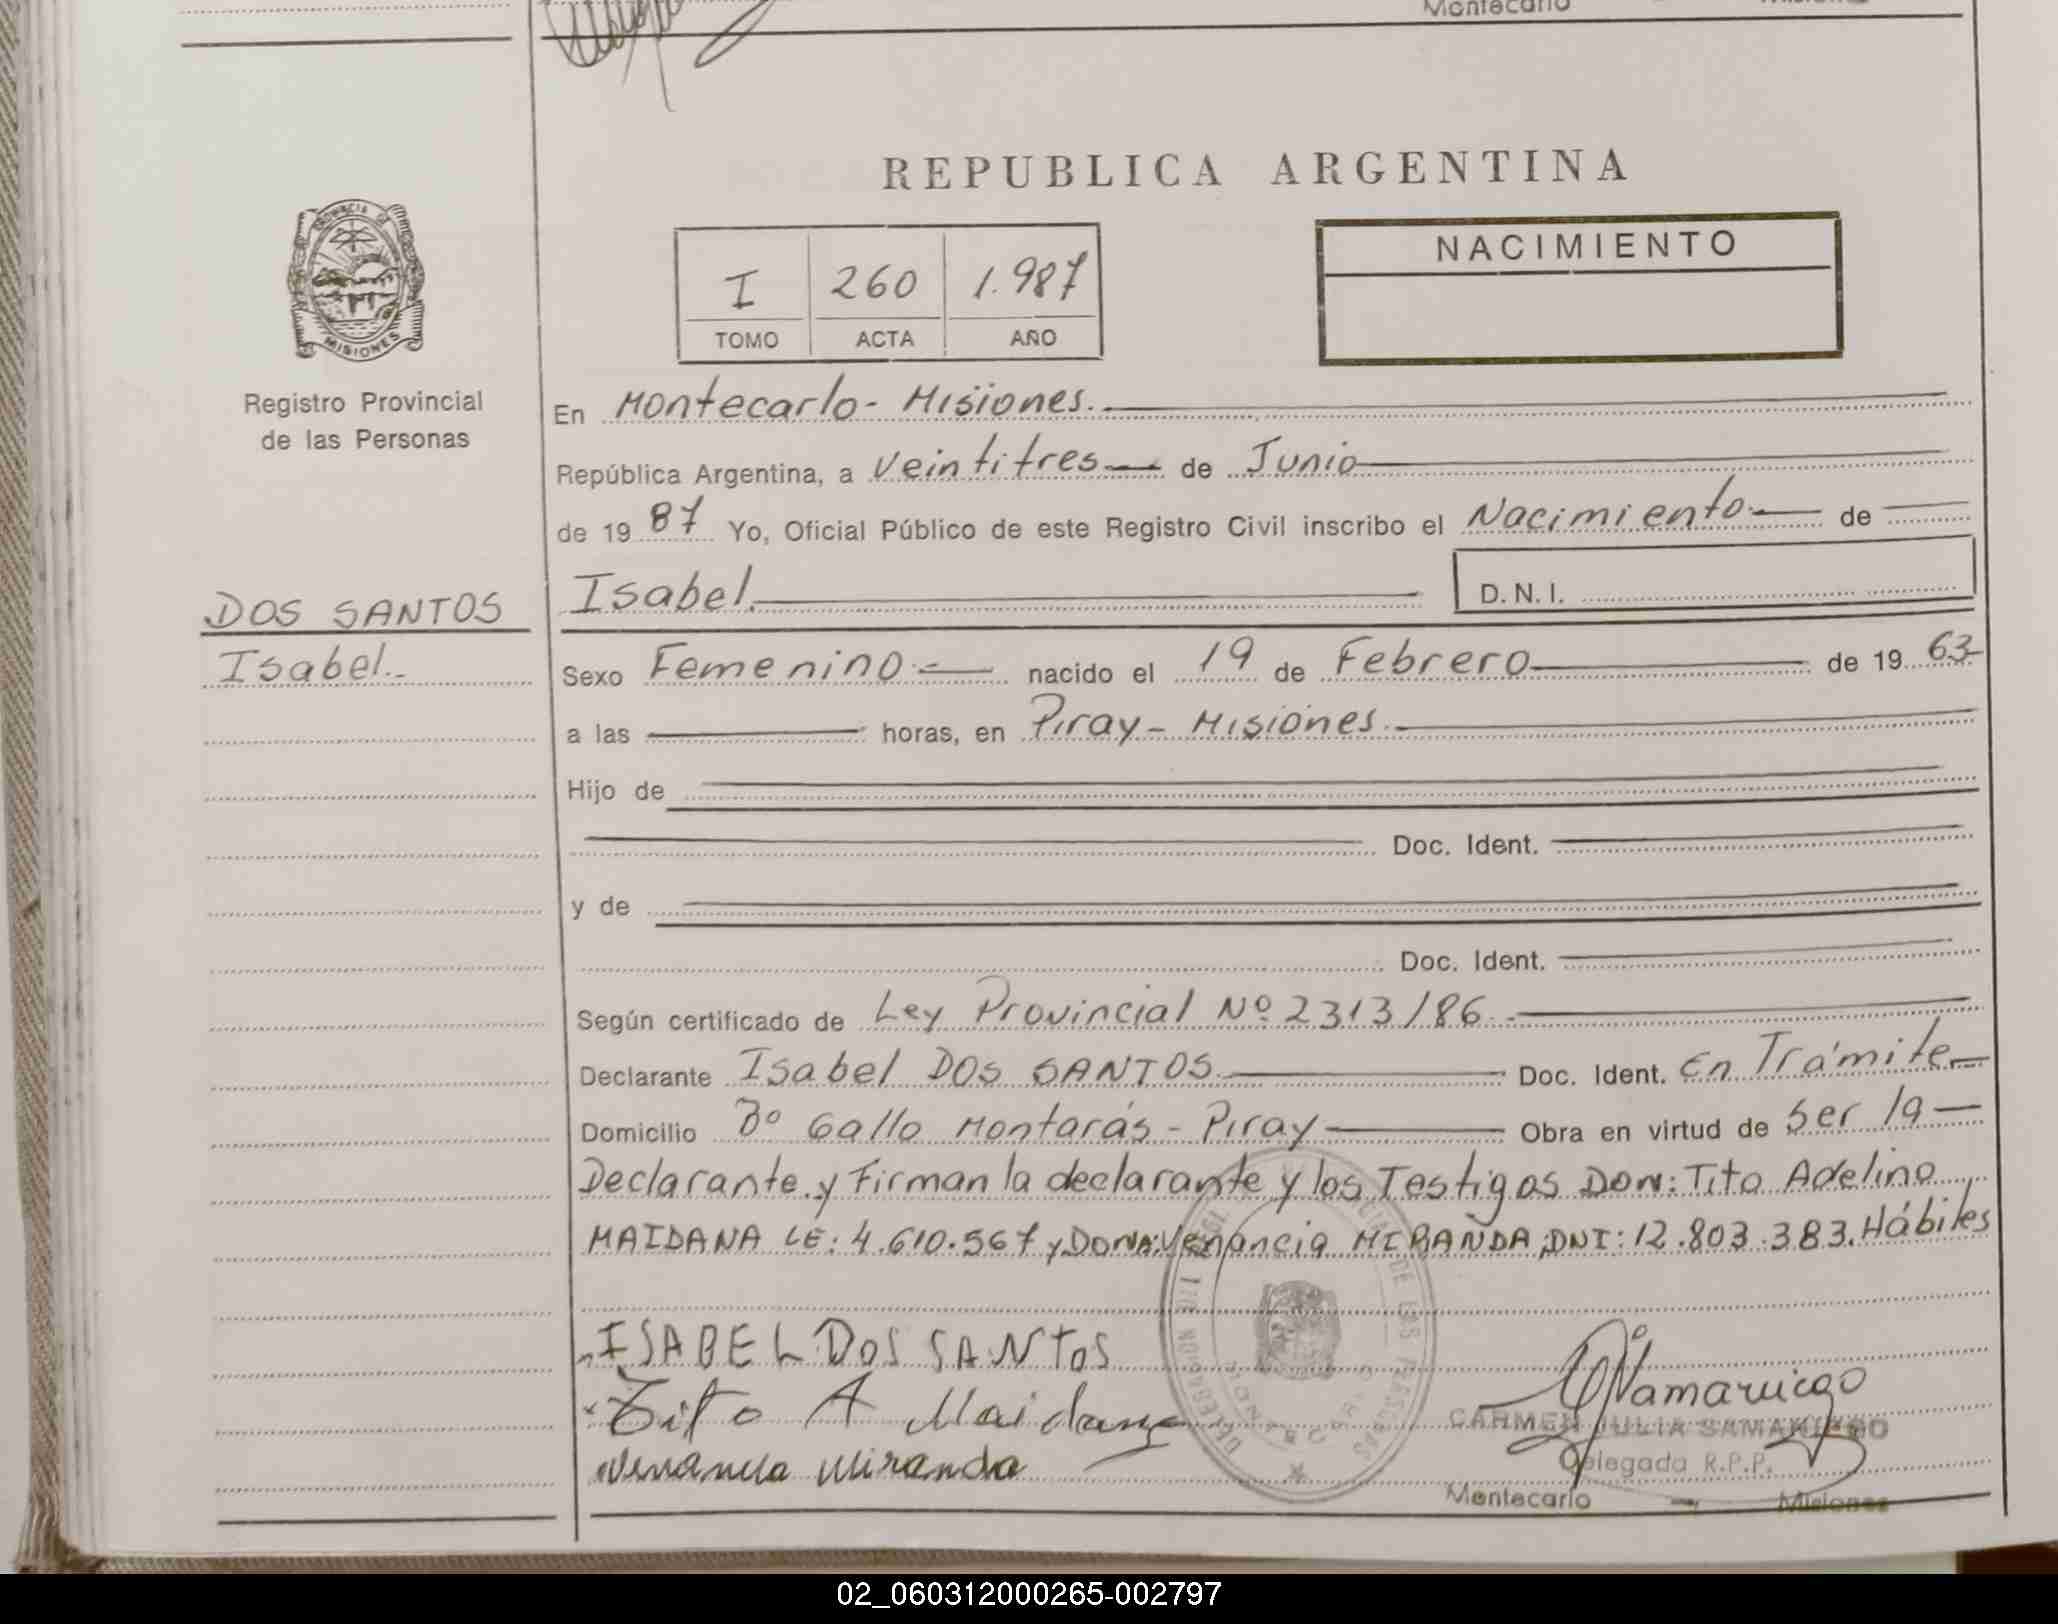 Montecarlo
REPUBLICA ARGENTINA
PROVINCIA DE
MISIONES
Registro Provincial
de las Personas
NACIMIENTO
I 260 1.987
TOMO ACTA AÑO
En Montecarlo - Misiones.
República Argentina, a veintitres de Junio
de 19 87 Yo, Oficial Público de este Registro Civil inscribo el Nacimiento de
Isabel. D.N.I.
DOS SANTOS
Isabel.-
Sexo Femenino.- nacido el 19 de Febrero de 19 63
a las horas, en Piray - Misiones.
Hijo de
Doc. Ident.
y de
Doc. Ident.
Según certificado de Ley Provincial Nº 2313/86.
Declarante Isabel DOS SANTOS Doc. Ident. En Trámite
Domicilio Bº Gallo Montarás - Piray Obra en virtud de ser la
Declarante y Firman la declarante y los Testigos Don: Tito Adelino
MAIDANA LE: 4.610.567 y DOÑA: Venancia MIRANDA, DNI: 12.803.383. Hábiles
ISABEL DOS SANTOS
Tito A Maidana
Venancia Miranda
CARMEN JULIA SAMANIEGO
Delegada R.P.P.
Montecarlo Misiones
02_060312000265-002797